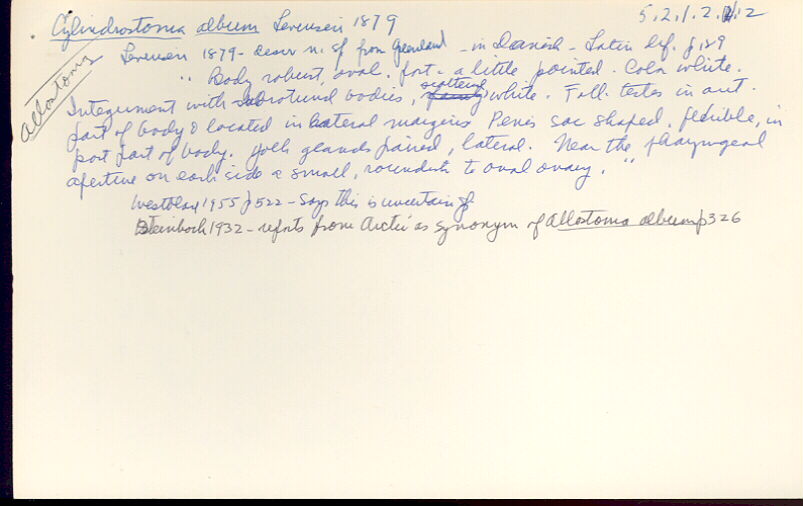 Cylindrostoma album Levensen 1879 5.2.1.2.11.12
Allostoma
Levensen 1879 - descr n. sp from Greenland - in Danish - Latin def. p 189
" Body robust, oval. fort - a little pointed. Color white.
Integument with subrotund bodies, scattered, white. Foll. testes in ant.
part of body & located in lateral margins. Penis sac shaped, flexible, in
post part of body. Yolk glands paired, lateral. Near the pharyngeal
aperture on each side a small, roundish to oval ovary. "
Westblad 1955 p 522 - says this is uncertain sp
Steinbock 1932 - reports from Arctic as synonym of Allostoma album p 326